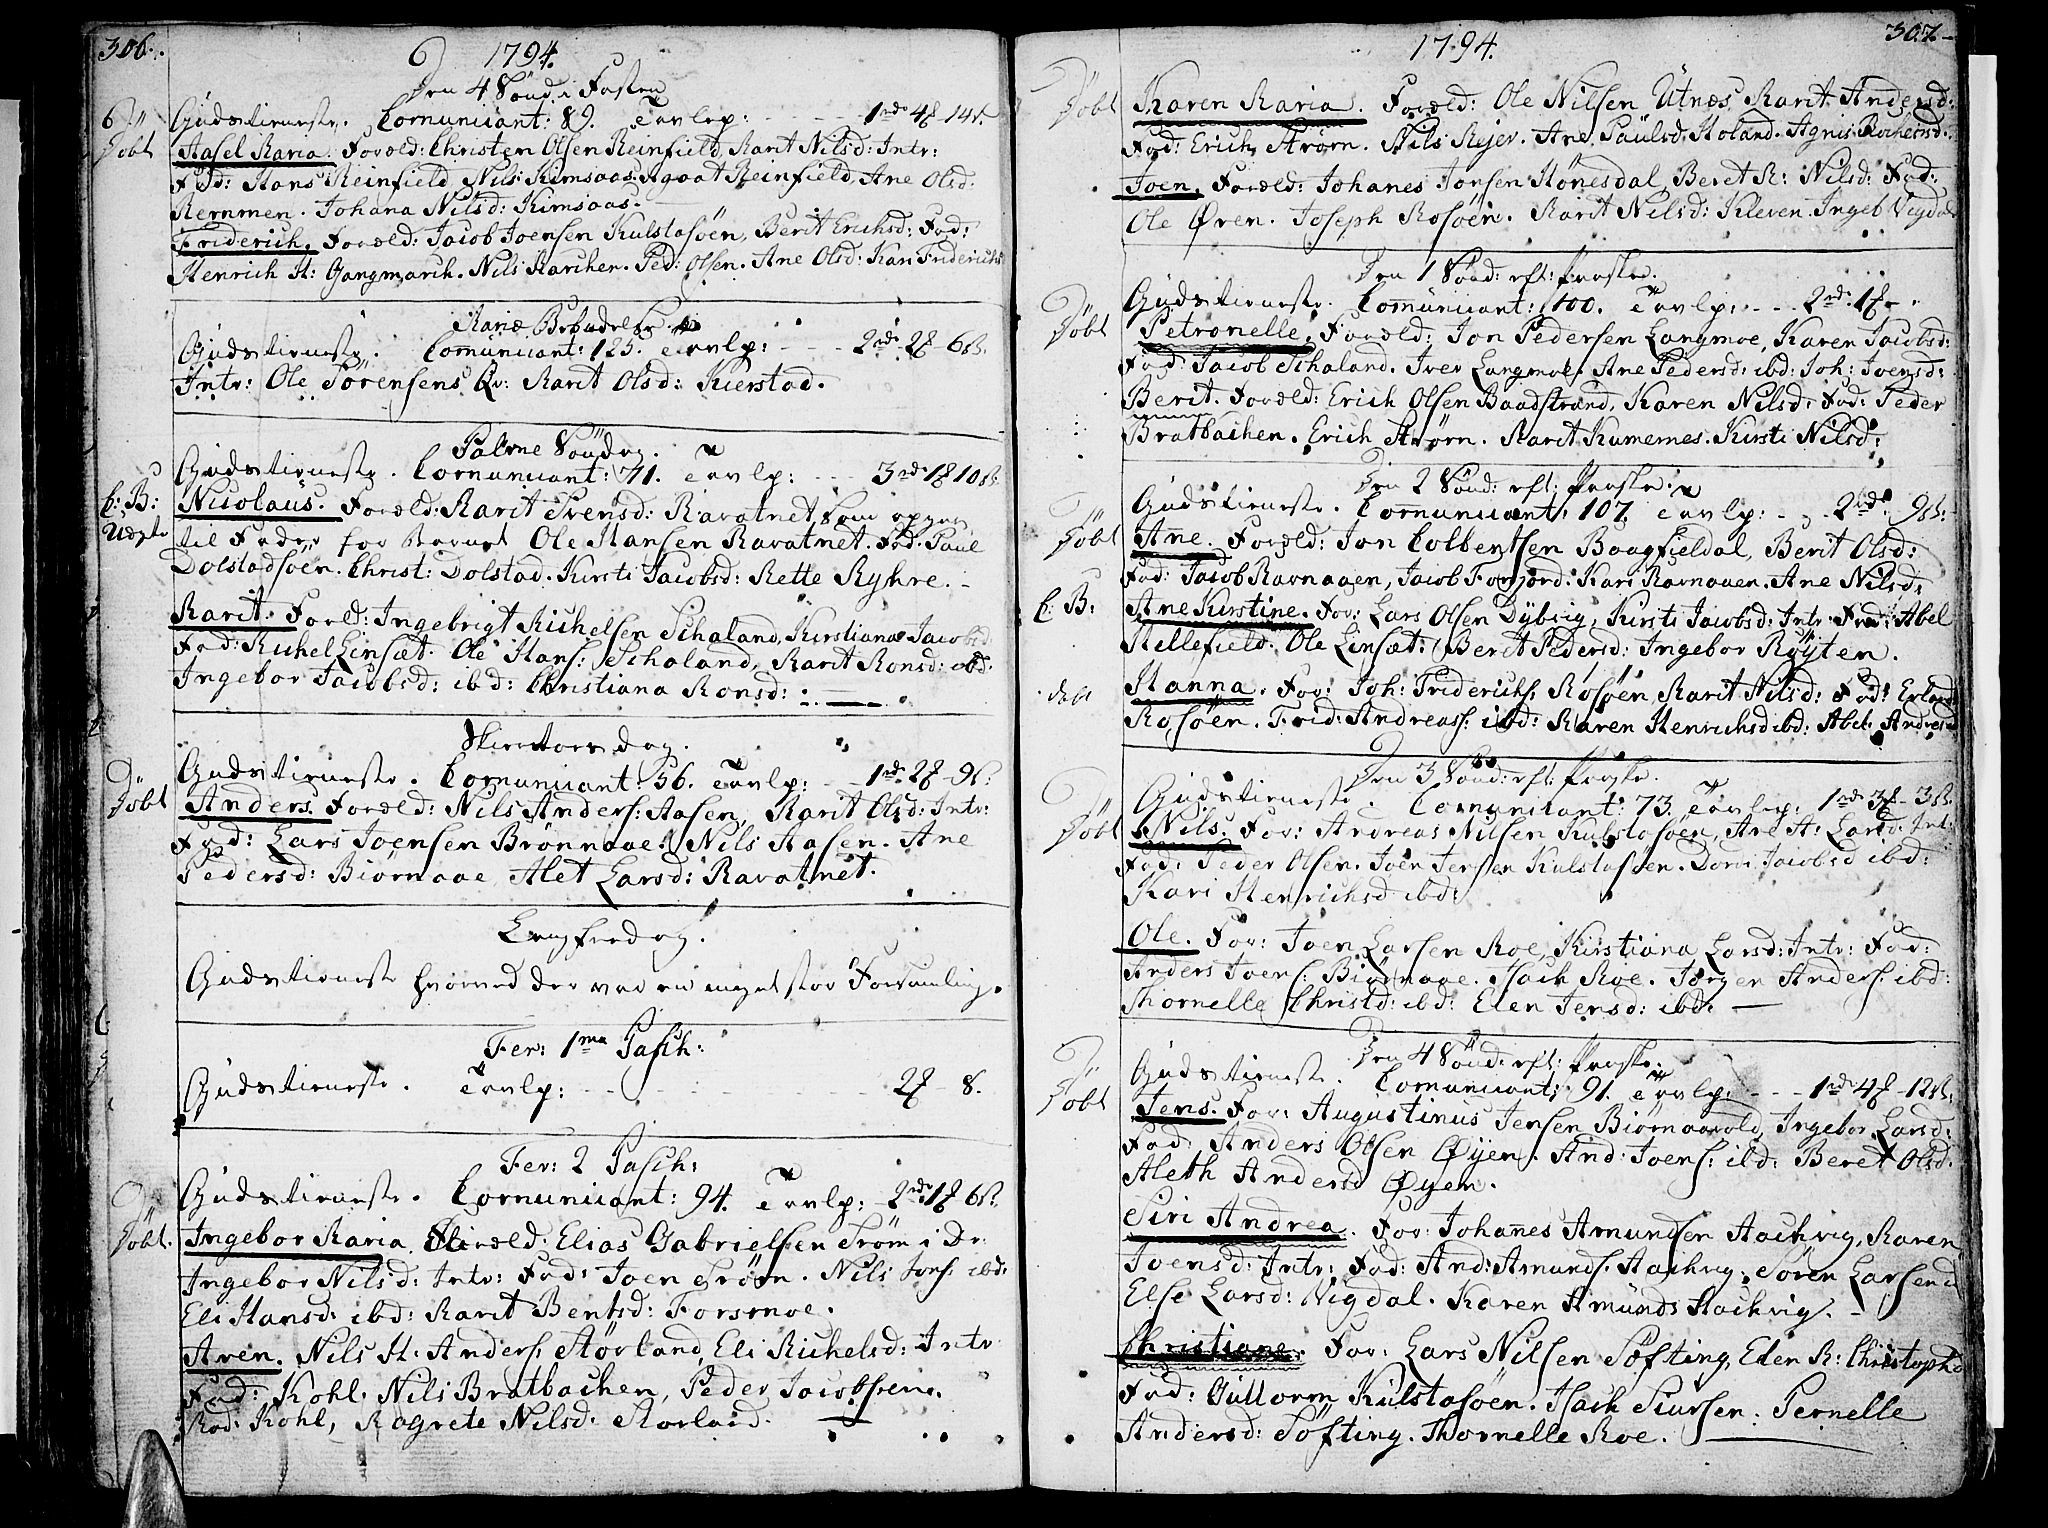 306.
1794.
Den 4 Sönd: i Fasten
Döbt
Gudstieneste. Communicant: 89. Tavlp: 1rd 4f 14s.
Aasel Maria. Foræld: Christen Olsen Reinfield, Marit Nilsd: Intr:
Fad: Hans Reinfield, Nils Remsaas. Agaat Reinfield, Ane Olsd:
Remmen. Johana Nilsd: Kimsaas.
Friderich. Foræld: Jacob Joensen Kulstasöen, Berit Erichsd: Fad:
Henrich H: Gangmarch. Nils Marchen. Ped: Olsen. Ane Olsd: Kan Friderichs
Mariæ Bebudelse
Gudstieneste. Communicant: 125. Tavlp: 2rd 2f 6s.
Intr: Ole Sörensens Qv: Marit Olsd: Kierstad.
Palme Söndag.
Gudstieneste. Communicant: 71. Tavlp: 3rd 1f 10s.
b: B:
Uægte
Nicolaus. Foræld: Marit Svensd: Ravatnet, som opgav
til Fader for barnet Ole Hansen Ravatnet. Fad: Paul
Dolstadsöen. Christ: Dolstad. Kirsti Jacobsd: Mette Myhre.
Marit. Foræld: Ingebrigt Michelsen Schaland, Kirstiana Jacobsd:
Fad: Michel Linsæt. Ole Hans: Schaland, Marit Monsd: ibd:
Ingebor Jacobsd: ibd: Christiana Monsd:
Skiertorsdag.
Döbt
Gudstieneste. Communicant: 56. Tavlp: 1rd 2f 9s.
Anders. Foræld: Nils Anders: Aasen, Marit Olsd: Intr:
Fad: Lars Joensen Brønnaae. Nils Aasen. Ane
Pedersd: Biørnaae, Alet Larsd: Ravatnet.
Langfredag.
Gudstieneste hvorved der var en meget stor Forsamling.
Fer: 1ma Pasch:
Gudstieneste. Tavlp: 2f 8.
Fer: 2 Pasch:
Gudstieneste. Communicant: 94. Tavlp: 2rd 1f 6s.
Döbt.
Ingebor Maria. Foræld: Elias Gabrielsen Trøm i Dr:
Ingebor Nilsd: Intr: Fad: Joen Trøm. Nils Jons: ibd:
Eli Hansd: ibd: Marit Bentsd: Forsmoe.
Aren. Nils H: Anders: Størland, Eli Michelsd: Intr:
Fad: Kohl. Nils Bratbachen, Peder Jacobsen.
Mad: Kohl, Magrete Nilsd: Storland.
307
1794.
Döbt
Karen Maria. Foræld: Ole Nilsen Utnæs, Marit Andersd:
Fad: Erich Strøm. Nils Mejer. Ane Paulsd: Holand. Agnis Michelsd:
Joen. Foræld: Johanes Jonsen Hönesdal, Beret M: Nilsd: Fad:
Ole Øren. Joseph Rosöen. Marit Nilsd: Kleven. Ingeb Vigdal
Den 1 Sönd: eft: Paaske.
Döbt
Gudstieneste. Communicant: 100. Tavlp: 2rd 1f
Petronelle. Foræld: Jon Pedersen Langmoe, Karen Jacobsd:
Fad: Jacob Schaland. Iver Langmoe. Ane Pedersd: ibd: Joh: Joensd:
Berit. Foræld: Erich Olsen Baadstrand, Karen Nilsd: Fad: Peder
Bratbachen. Erich Strøm. Marit Kumernes. Kirsti Nilsd:
Den 2 Sönd: eft: Paaske:
Döbt
Gudstieneste. Communicant: 107. Tavlp: 2rd 9s:
Ane. Foræld: Jon Colbentsen Baagfieldal, Berit Olsd:
Fad: Jacob Ravnaaen, Jacob Forfiord. Kari Ravnaaen. Ane Nilsd:
b: B:
Ane Kirstine. For: Lars Olsen Dybvig, Kirsti Jacobsd: Intr: Fad: Abel
Hellefield. Ole Linsæt: Beret Pedersd: Ingebor Røyten.
Hanna. For: Joh: Friderichs: Rosöen, Marit Nilsd: Fad: Erland
Rosöen. Frid: Andreass: ibd: Karen Henrichsd ibd: Abel Andreasd
Den 3 Sönd: eft: Paaske.
Döbt
Gudstieneste. Communicant: 73. Tavlp: 1rd 3f 3s.
Nils. For: Andreas Nilsen Kulstasöen, Ane A: Larsd: Int:
Fad: Peder Olsen. Joen Jensen Kulstasöen. Dorit Jacobsd ibd:
Kari Henrichsd ibd:
Ole. For: Joen Larsen Moe, Kirstiana Larsd: Intr: Fad:
Anders Joens: Biørnaae. Isach Moe. Jørgen Anders: ibd:
Thornelle Christd: ibd: Elen Jensd: ibd:
Den 4 Sönd: eft: Paaske.
Döbt
Gudstieneste. Communicant: 91. Tavlp: 1rd 4f 12s.
Jens. For: Augustinus Jensen Biørnaavold, Ingebor Larsd:
Fad: Anders Olsen Øyen. And: Joens: ibd: Beret Olsd:
Aleth Andersd Øyen.
Siri Andrea. For: Johannes Amundsen Aachvig, Maren
Joensd: Intr: Fad: And: Amunds: Aachvig. Sören Larsen
Else Larsd: Vigdal. Karen Amunds Aachvig.
Christiane. For: Lars Nilsen Söfting, Elen M: Christophd
Fad: Guttorm Kulstasöen. Isach Siursen. Pernelle
Andersd: Söfting. Thornelle Moe.